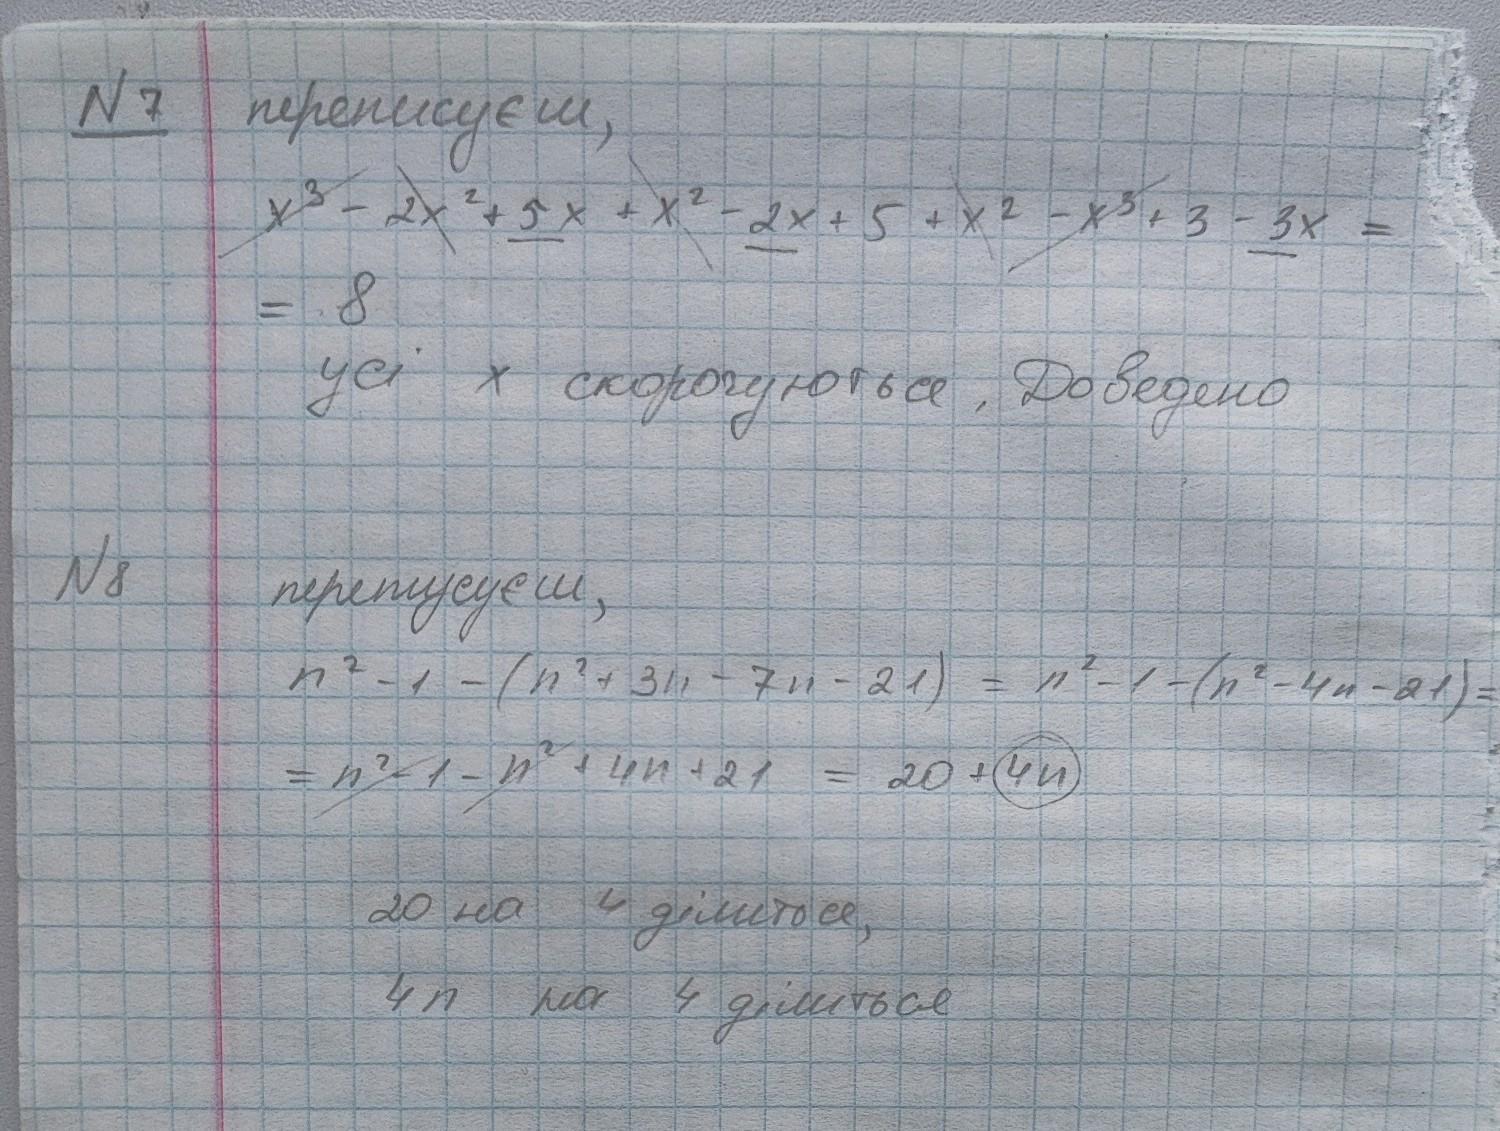 N7 переписуєш,
x³ - 2x² + 5x + x² - 2x + 5 + x² - x³ + 3 - 3x =
= 8
усі x скорочуються. Доведено
N8 переписуєш,
n² - 1 - (n² + 3n - 7n - 21) = n² - 1 - (n² - 4n - 21) =
= n² - 1 - n² + 4n + 21 = 20 + 4n
20 на 4 ділиться,
4n на 4 ділиться